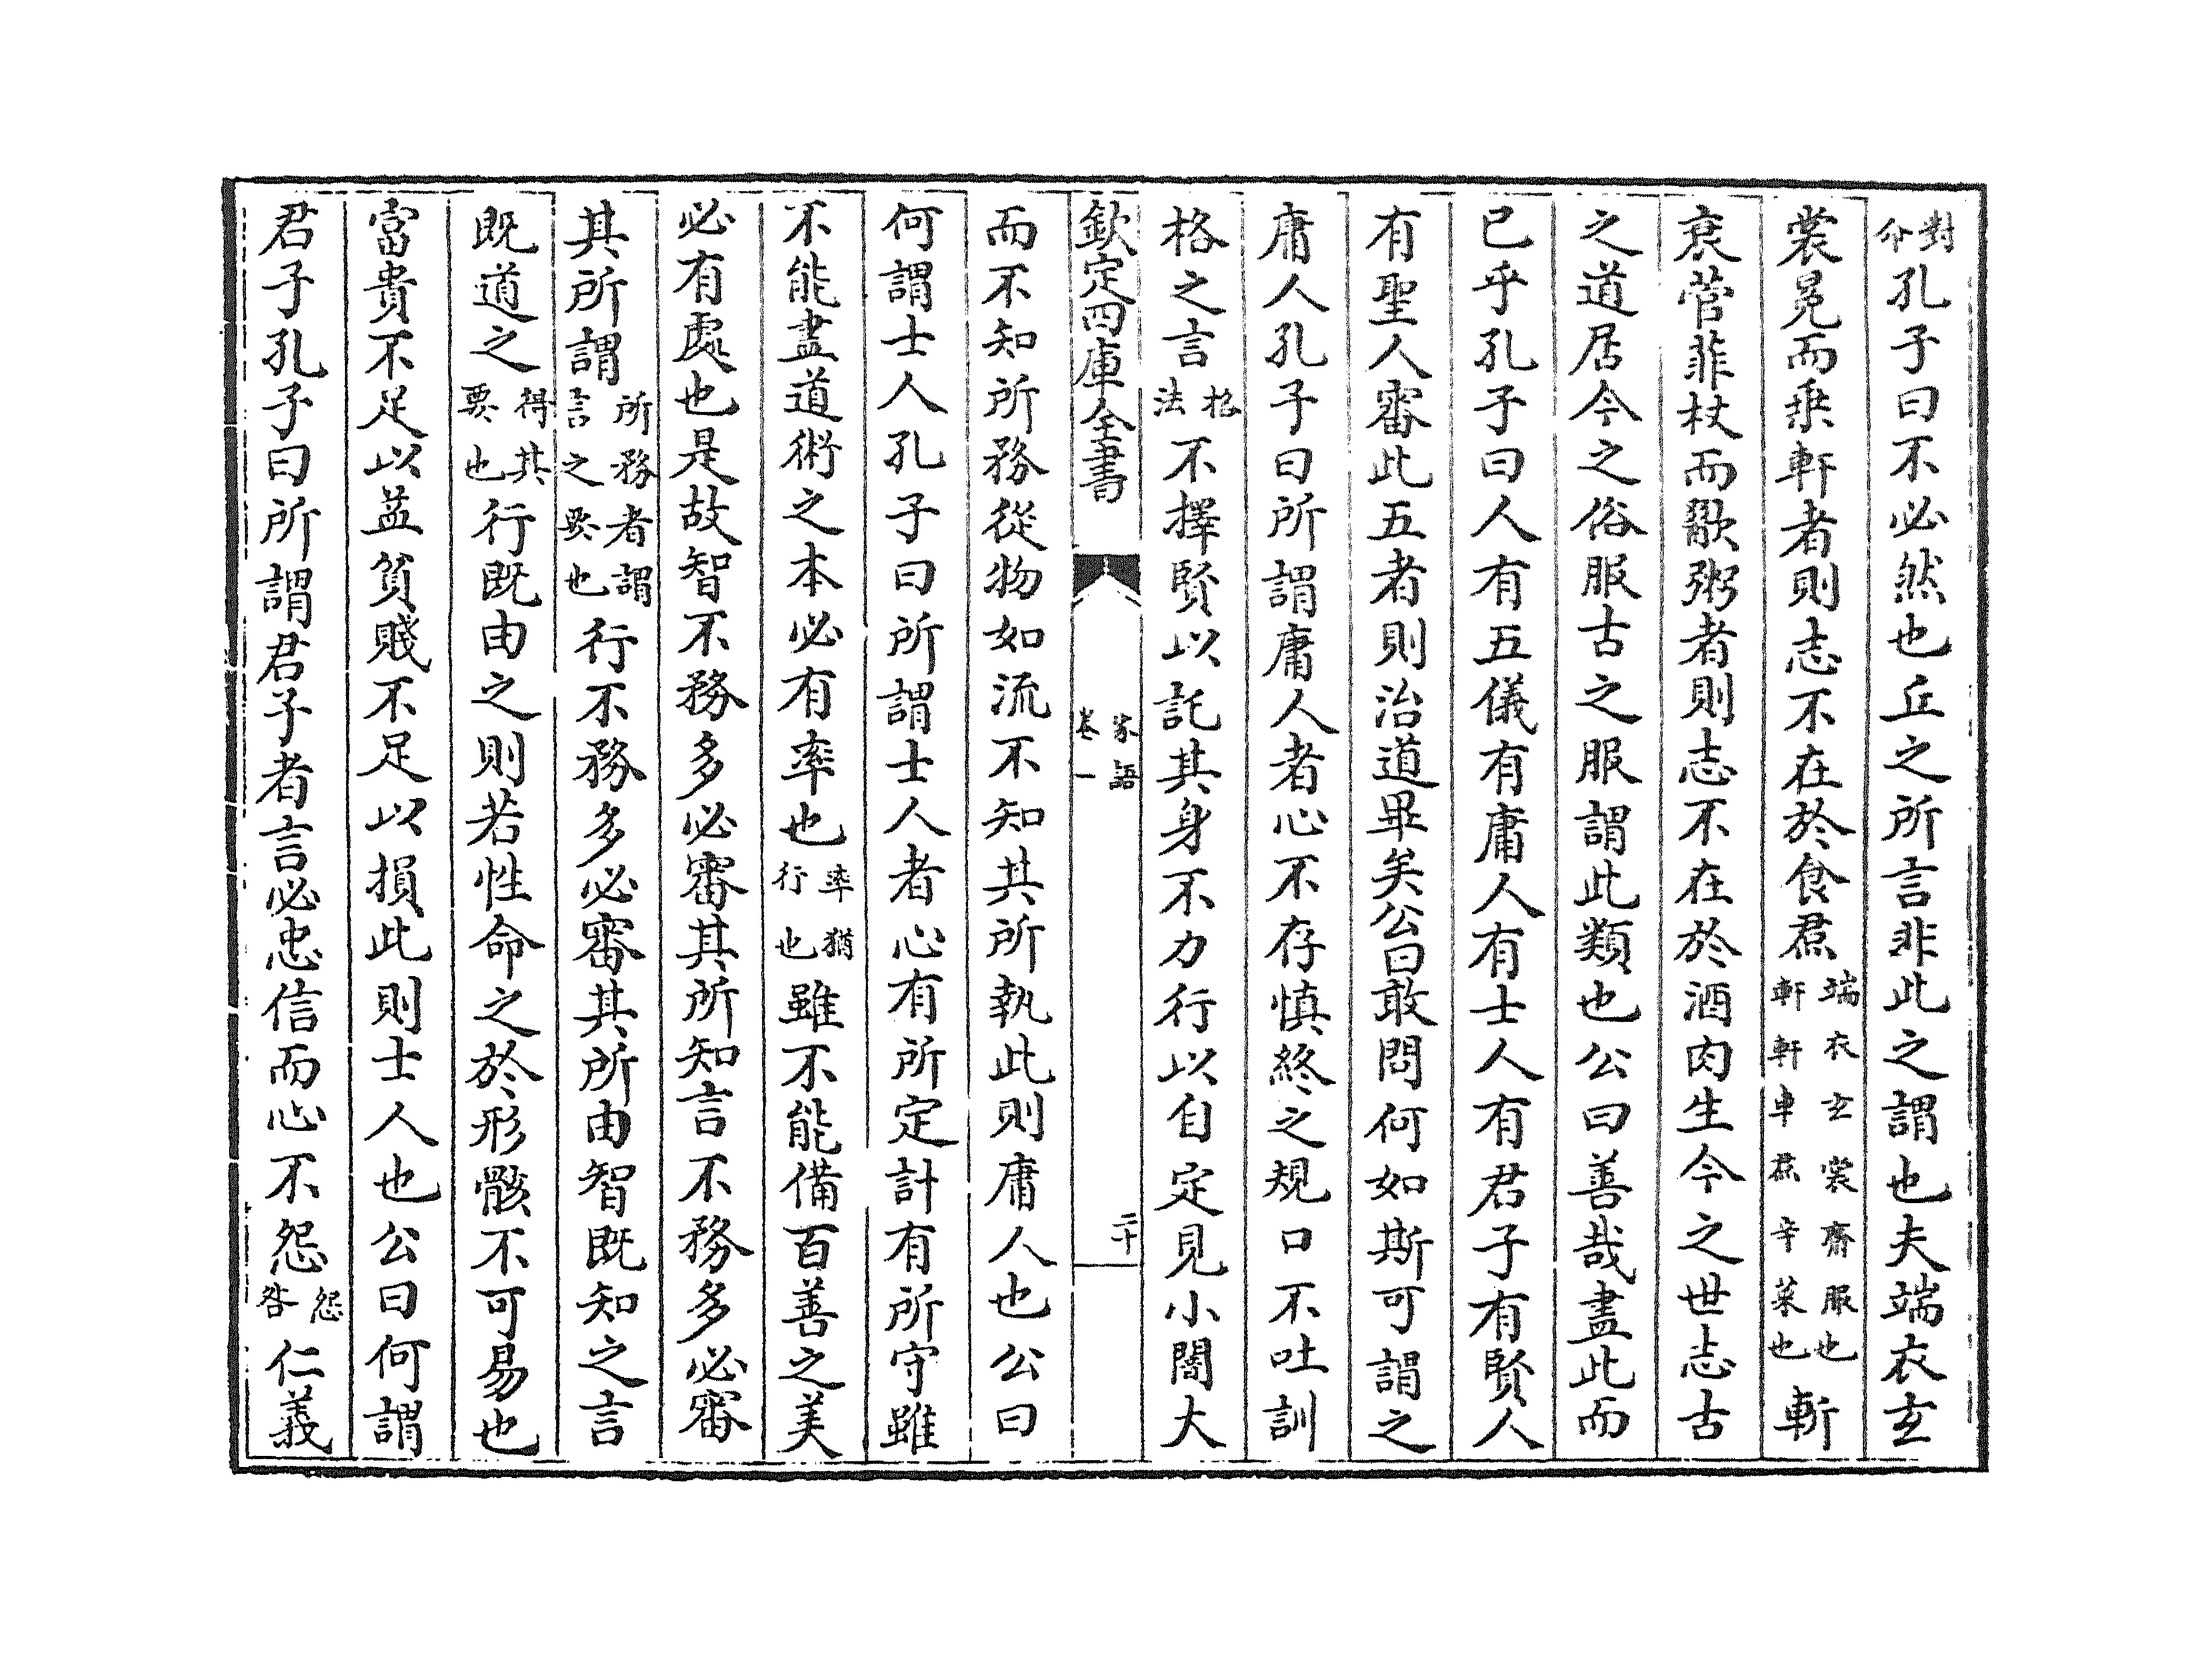 對笏孔子曰不必然也丘之所言非此之謂也夫端衣玄
裳冕而乗軒者則志不在於食焄端衣玄裳齋服也軒軒車焄辛菜也斬
衰菅菲杖而歠粥者則志不在於酒肉生今之世志古
之道居今之俗服古之服謂此類也公曰善哉盡此而
已乎孔子曰人有五儀有庸人有士人有君子有賢人
有聖人審此五者則治道畢矣公曰敢問何如斯可謂之
庸人孔子曰所謂庸人者心不存慎終之規口不吐訓
格之言格法不擇賢以託其身不力行以自定見小闇大
欽定四庫全書 家語卷一 二十
而不知所務從物如流不知其所執此則庸人也公曰
何謂士人孔子曰所謂士人者心有所定計有所守雖
不能盡道術之本必有率也率猶行也雖不能備百善之美
必有處也是故智不務多必審其所知言不務多必審
其所謂所務者謂言之要也行不務多必審其所由智既知之言
既道之得其要也行既由之則若性命之於形骸不可易也
富貴不足以益貧賤不足以損此則士人也公曰何謂
君子孔子曰所謂君子者言必忠信而心不怨怨咎仁義